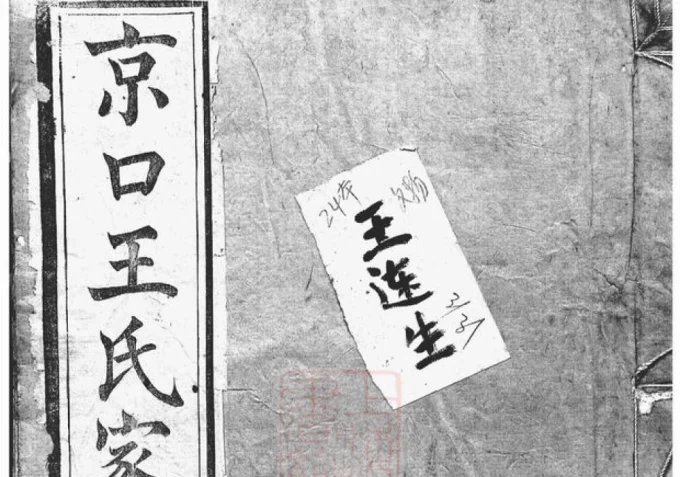 京口王氏家
24本
文物
王连生